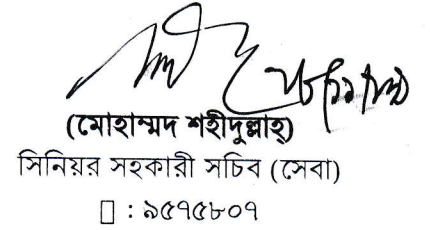 (মোহাম্মদ শহীদুল্লাহ্)
সিনিয়র সহকারী সচিব (সেবা)
: ৯৫৭৫৮০৭